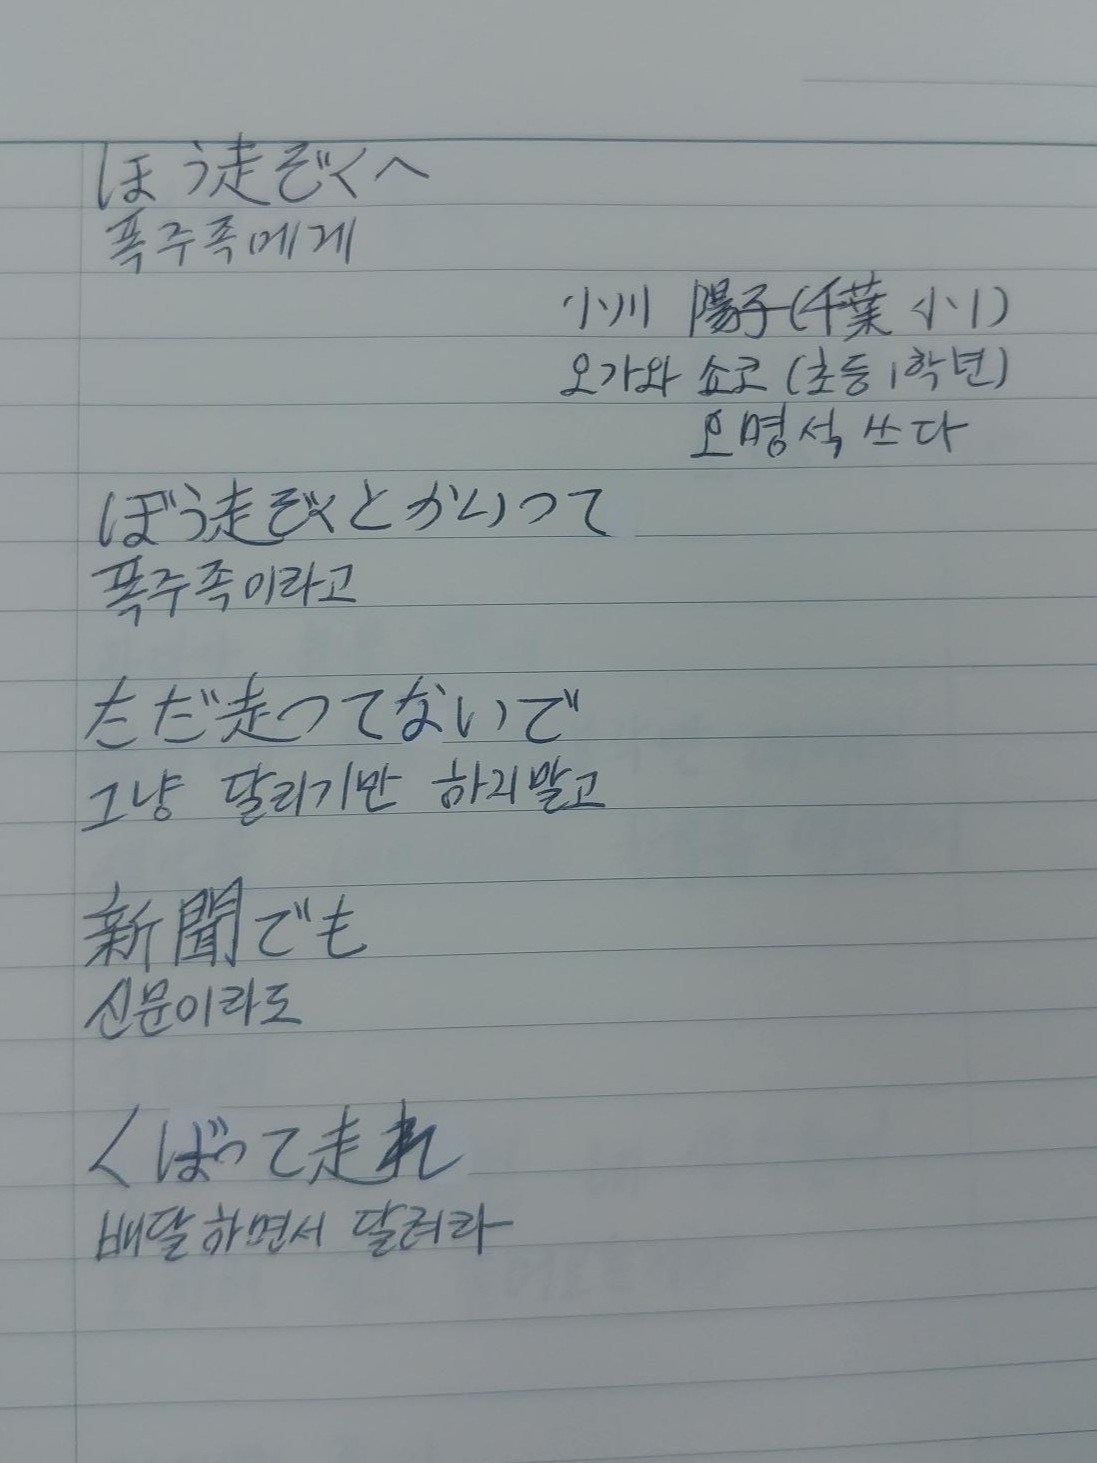 ほう走ぞくへ
폭주족에게
小川 陽子(千葉 小1)
오가와 쇼코 (초등1학년)
오명석 쓰다
ぼう走ぞくとかいって
폭주족이라고
ただ走ってないで
그냥 달리기만 하지말고
新聞でも
신문이라도
くばって走れ
배달하면서 달려라